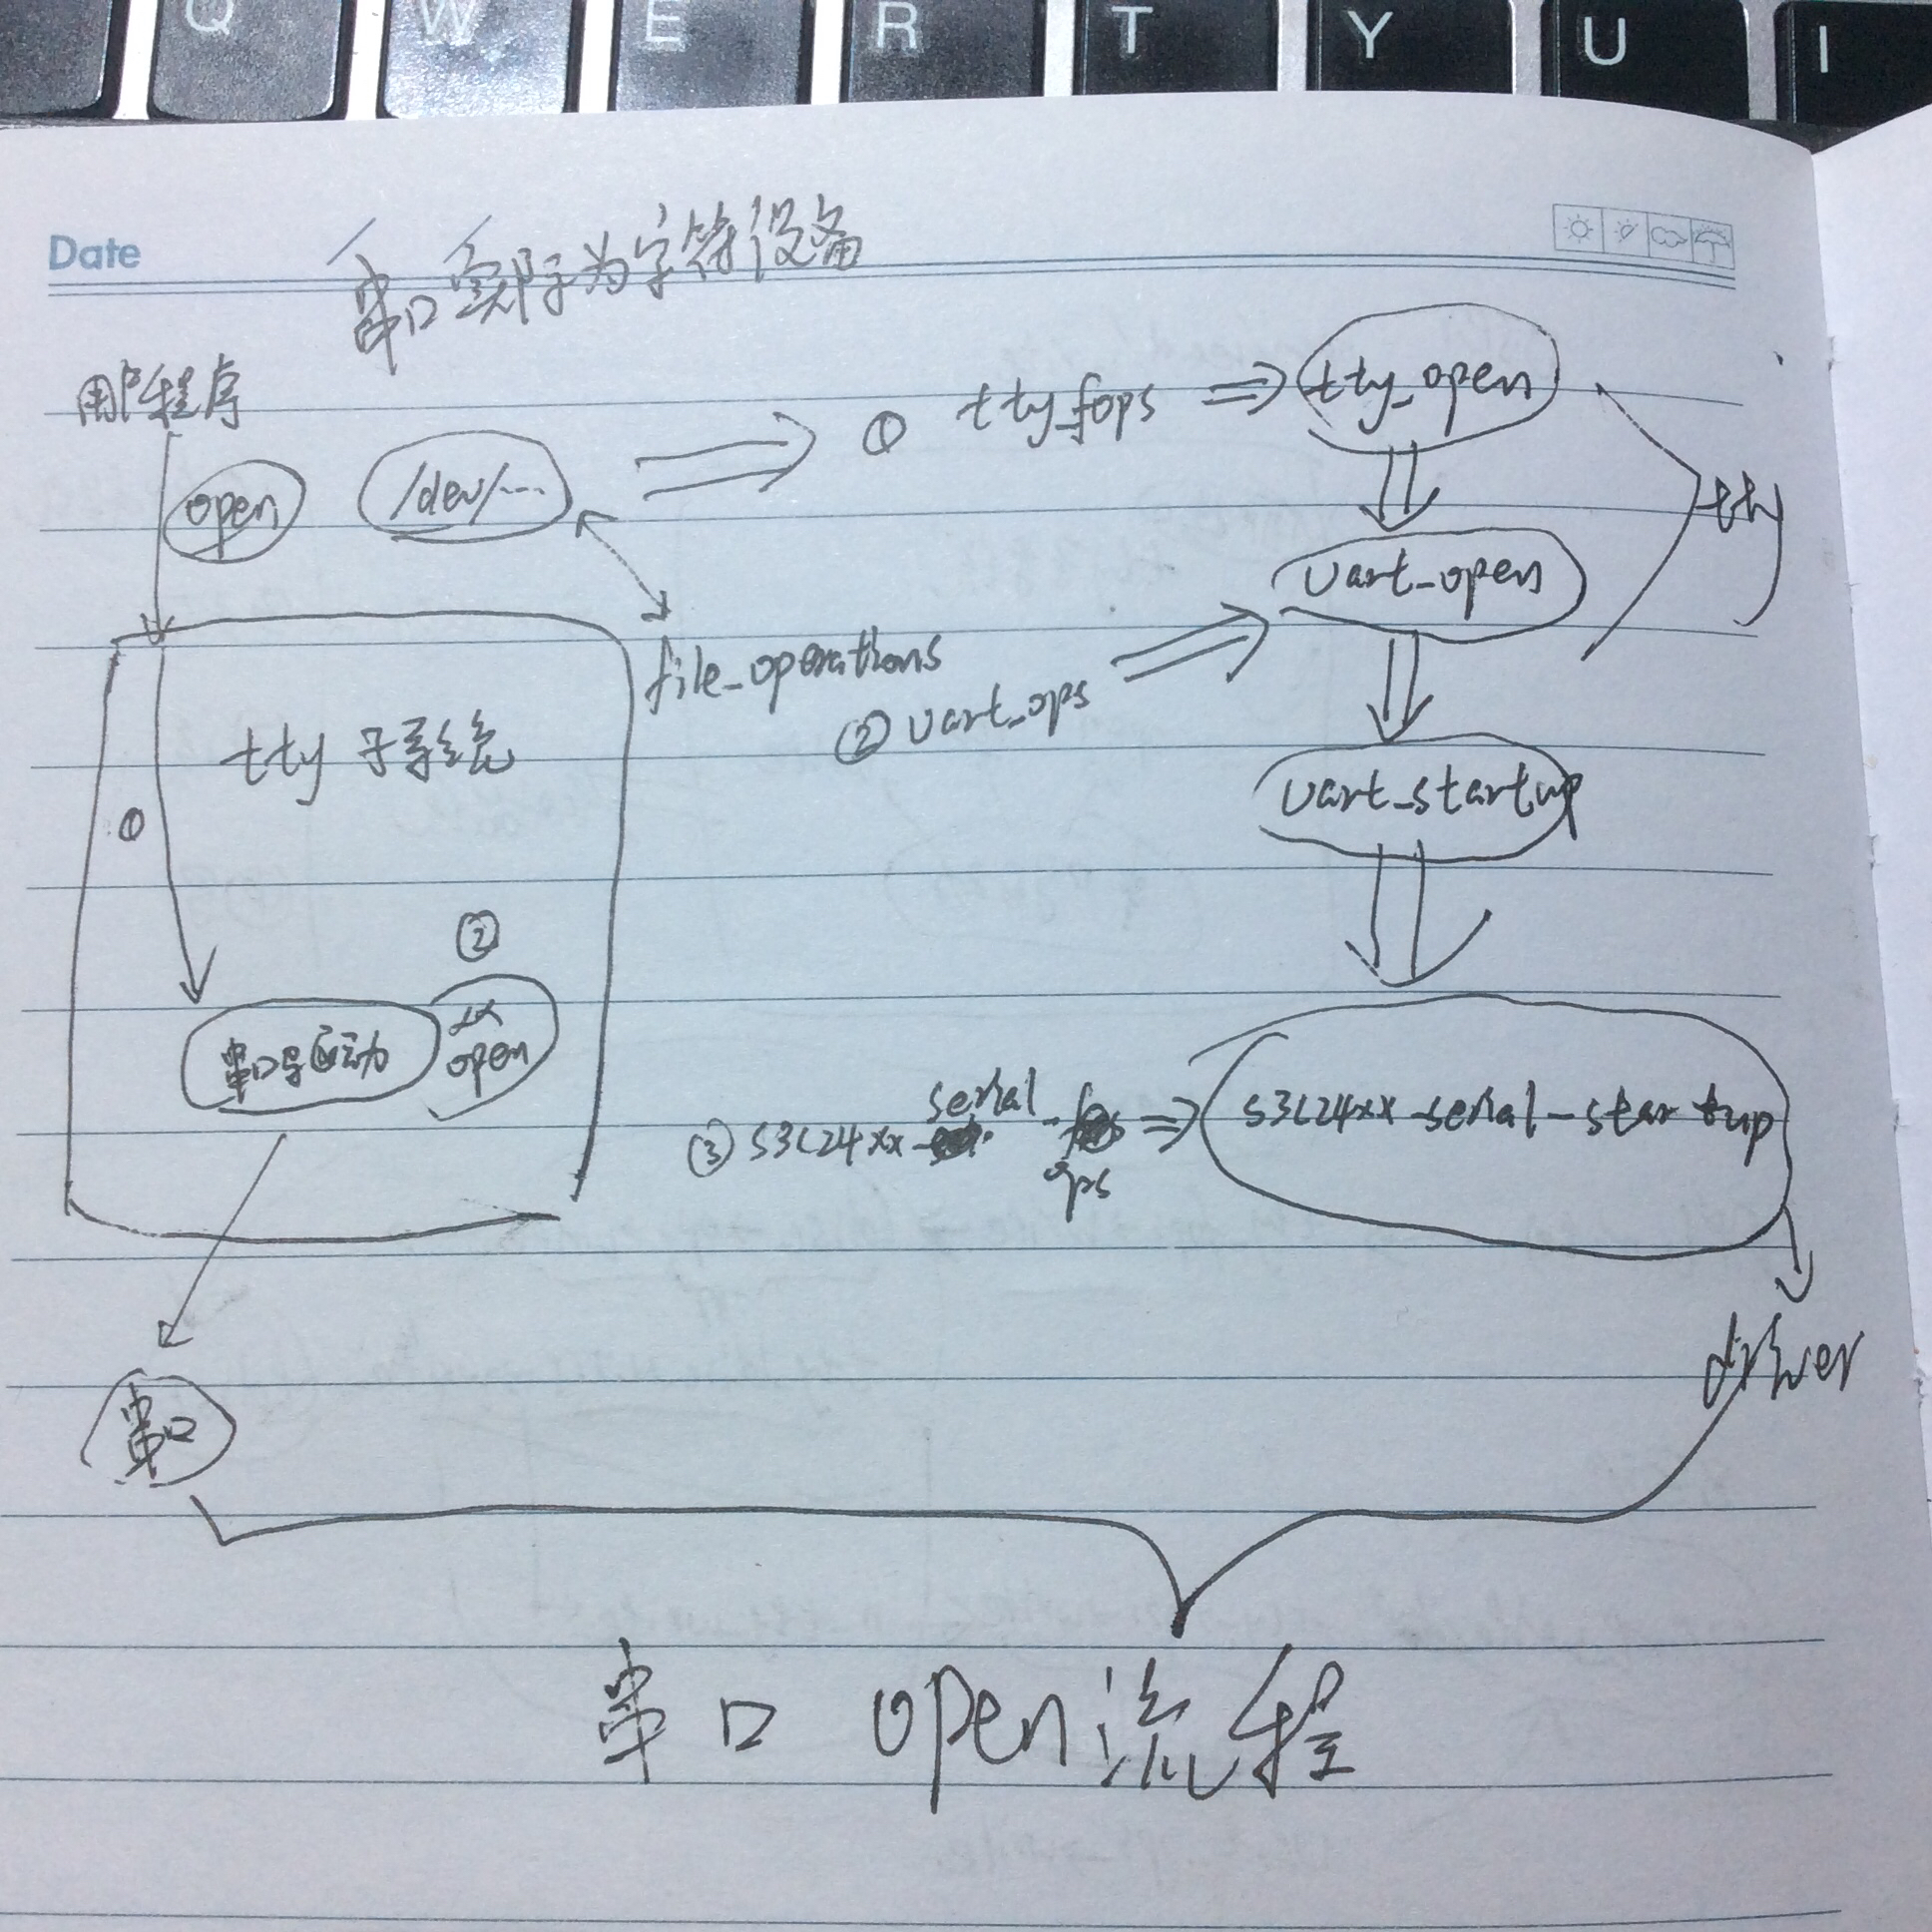 Q W E R T Y U I
Date
串口实际为字符设备
用户程序
open
/dev/...
① tty_fops
tty_open
tty
uart_open
file_operations
② uart_ops
tty 子系统
①
uart_startup
②
串口驱动
xx
open
serial
③ s3c24xx-
ops
s3c24xx-serial-startup
driver
串口
串口 open流程